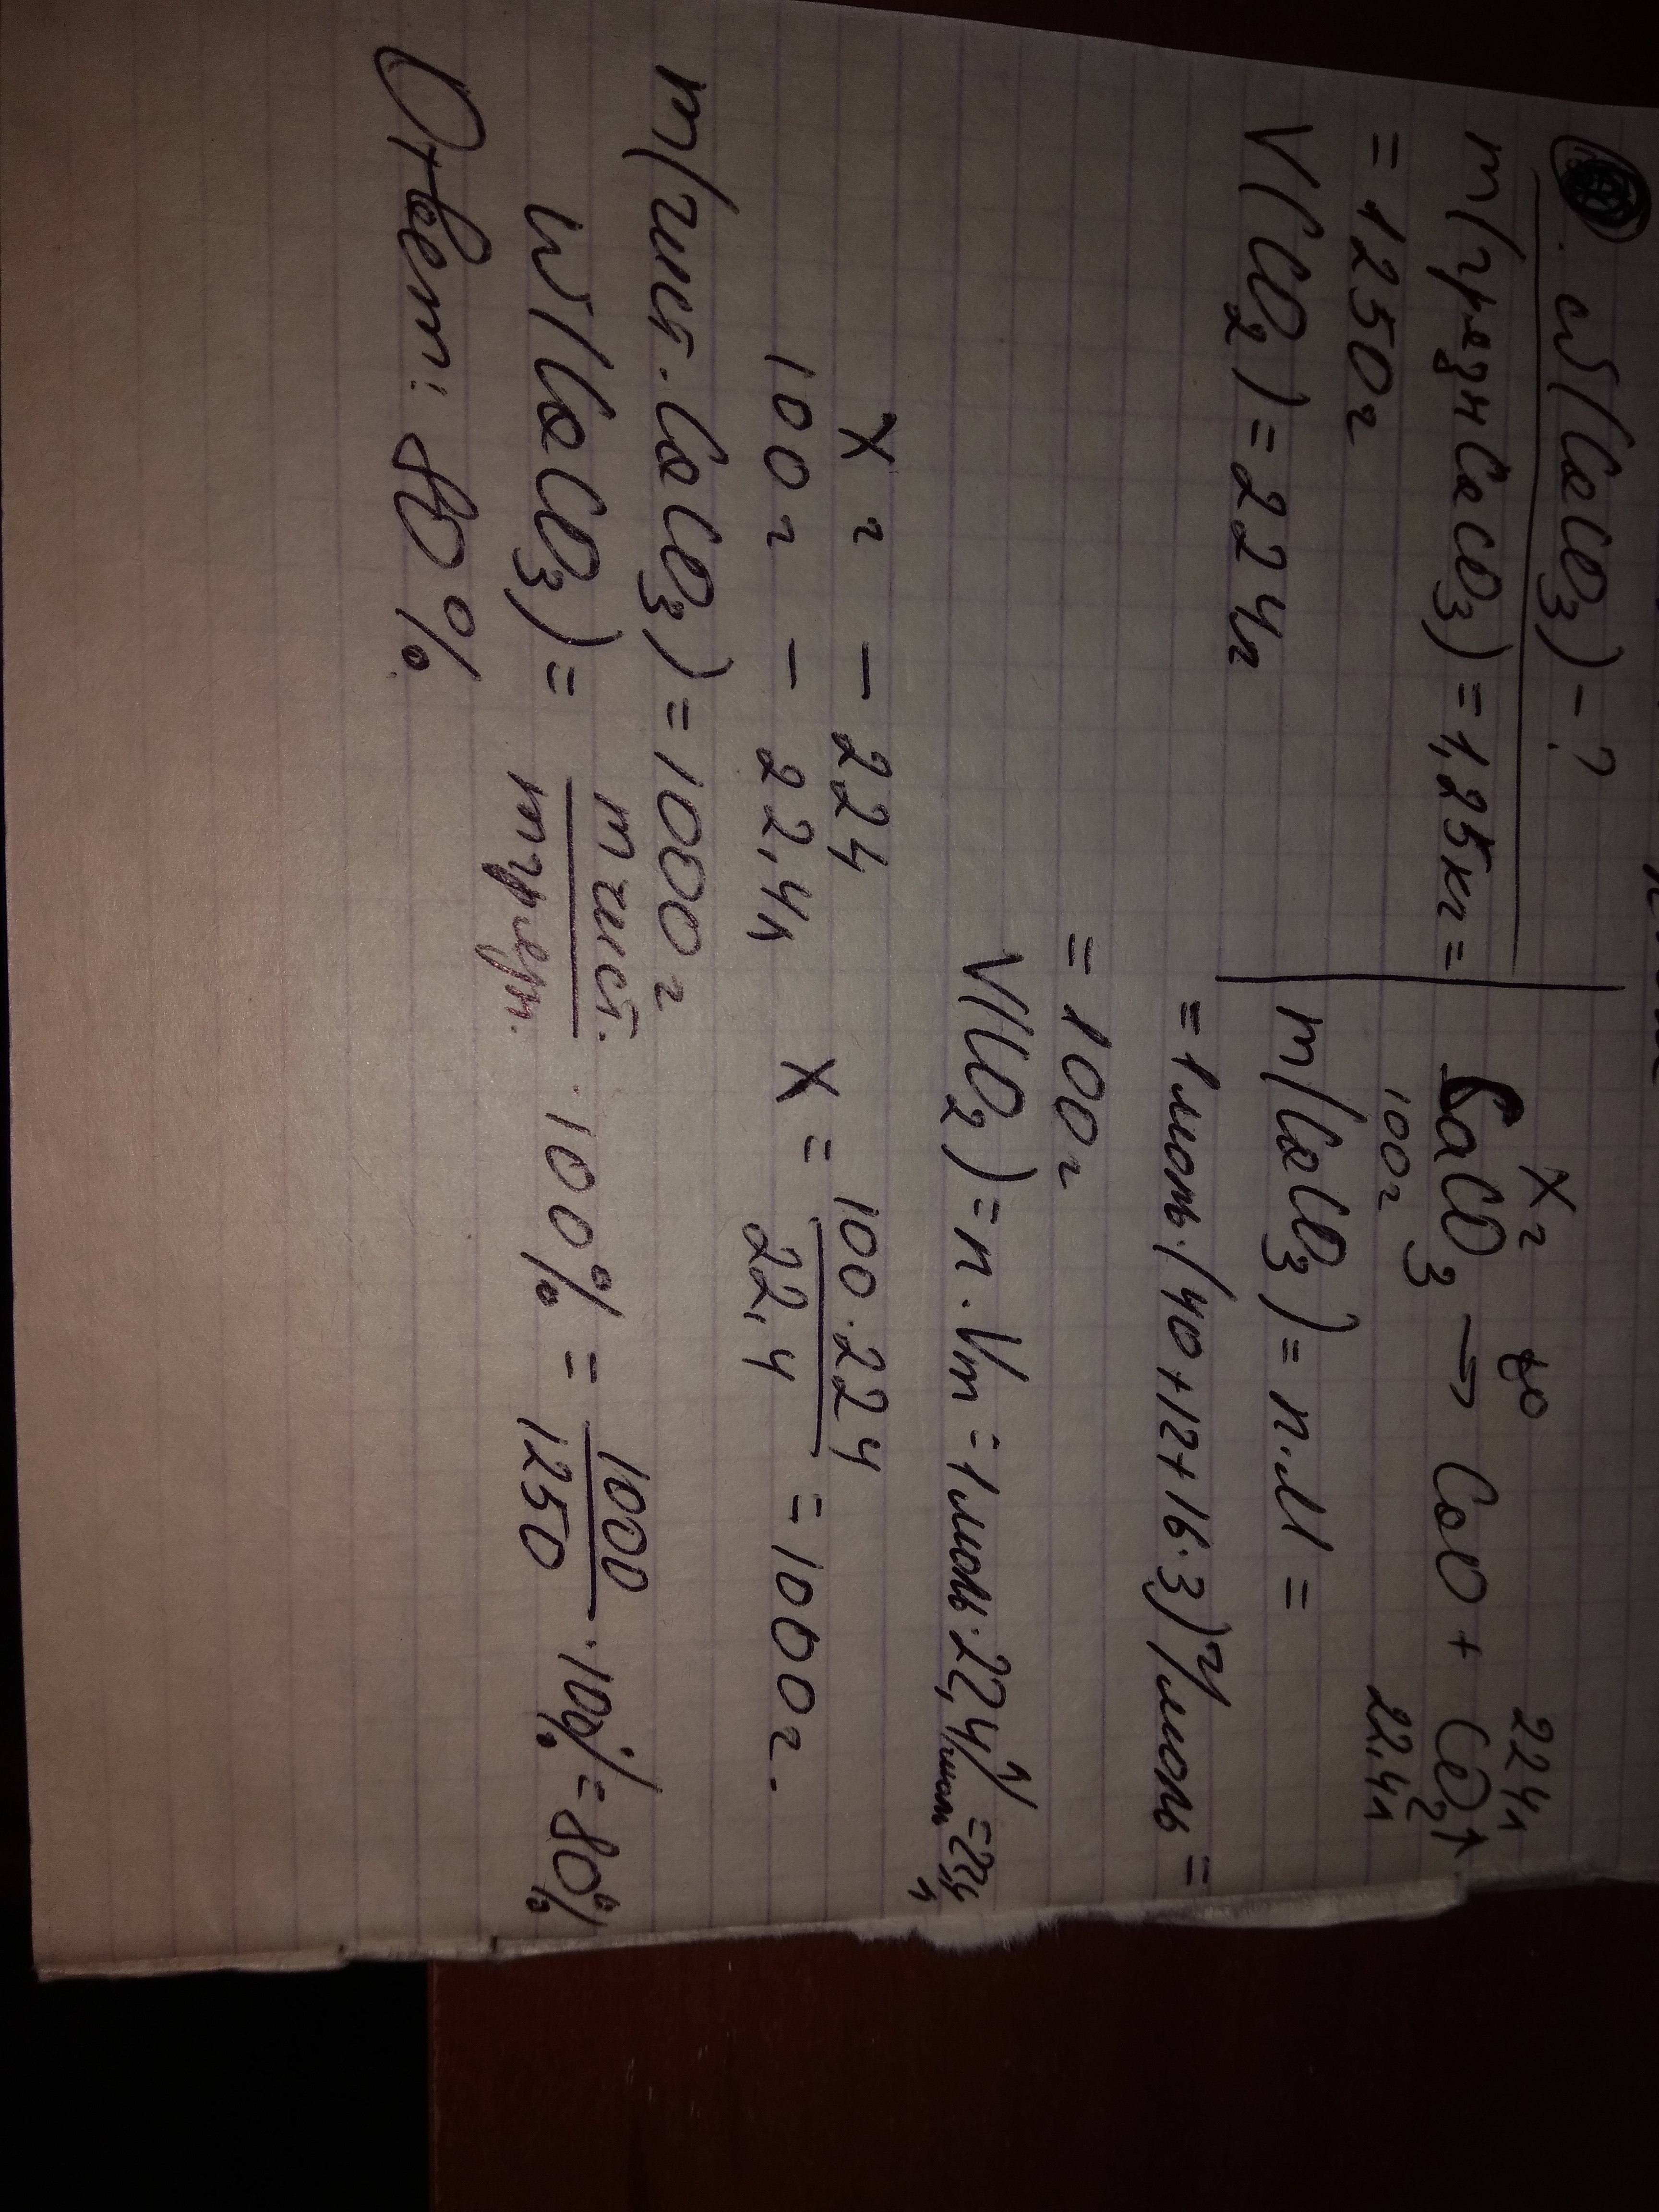 ω(CaCO₃) - ?
m(грязн CaCO₃) = 1,25кг =
= 1250г
V(CO₂) = 224л
Xг t° 224л
CaCO₃ → CaO + CO₂↑
100г 22,4л
m(CaCO₃) = n·M =
= 1моль·(40+12+16·3)г/моль =
= 100г
V(CO₂) = n·Vm = 1моль·22,4л/моль = 22,4
л
Xг - 224
100г - 22,4л
X = 100·224 / 22,4 = 1000г.
m(чист. CaCO₃) = 1000г
W(CaCO₃) = m чист. / m грязн. · 100% = 1000 / 1250 · 100% = 80%
Ответ: 80%